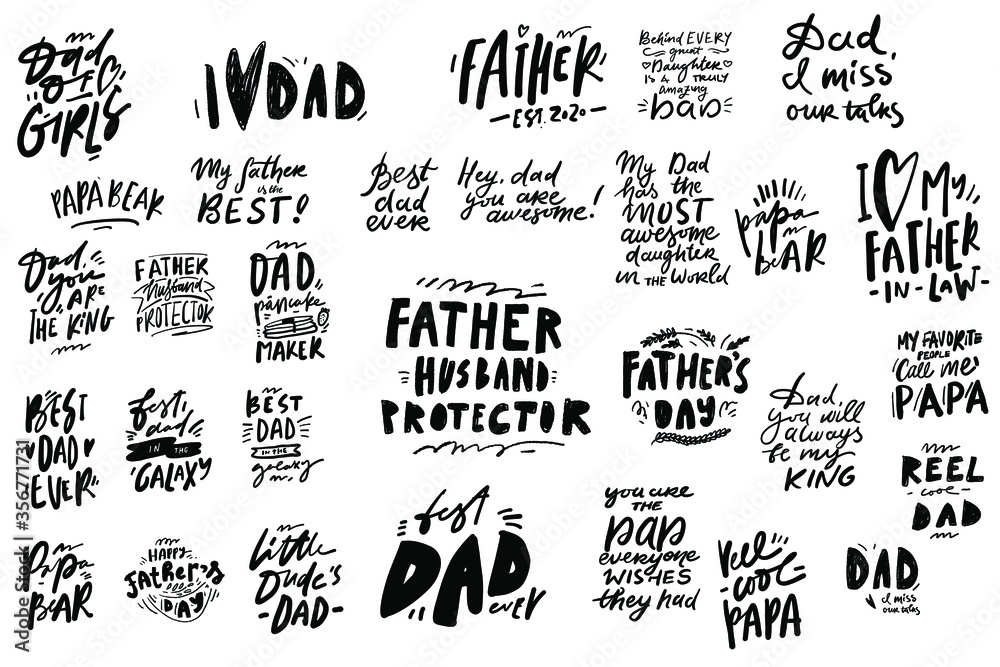 Dad
OF
GIRLS
I DAD
FATHER
EST. 2020
Behind EVERY
great
Daughter
IS A TRULY
amazing
DAD
Dad,
I miss
our talks
PAPA BEAR
My father
is the
BEST!
Best
dad
ever
Hey, dad
you are
awesome!
My Dad
has the
MOST
awesome
daughter
IN THE WORLD
papa
BEAR
I MY
FATHER
-IN-LAW-
Dad,
you
ARE
THE KING
FATHER
husband
PROTECTOR
DAD
pancake
MAKER
FATHER
HUSBAND
PROTECTOR
FATHER'S
DAY
Dad,
you will
always
be my
KING
MY FAVORITE
PEOPLE
Call me
PAPA
BEST
DAD
EVER
Best
dad
IN THE
GALAXY
BEST
DAD
IN THE
galaxy
REEL
COOL
DAD
PAPA
BEAR
HAPPY
Father's
DAY
Little
Dude's
DAD
Best
DAD
ever
you are
THE
pap
everyone
WISHES
they had
Reel
COOL
PAPA
DAD
I miss
our talks
Adobe Stock
356771731